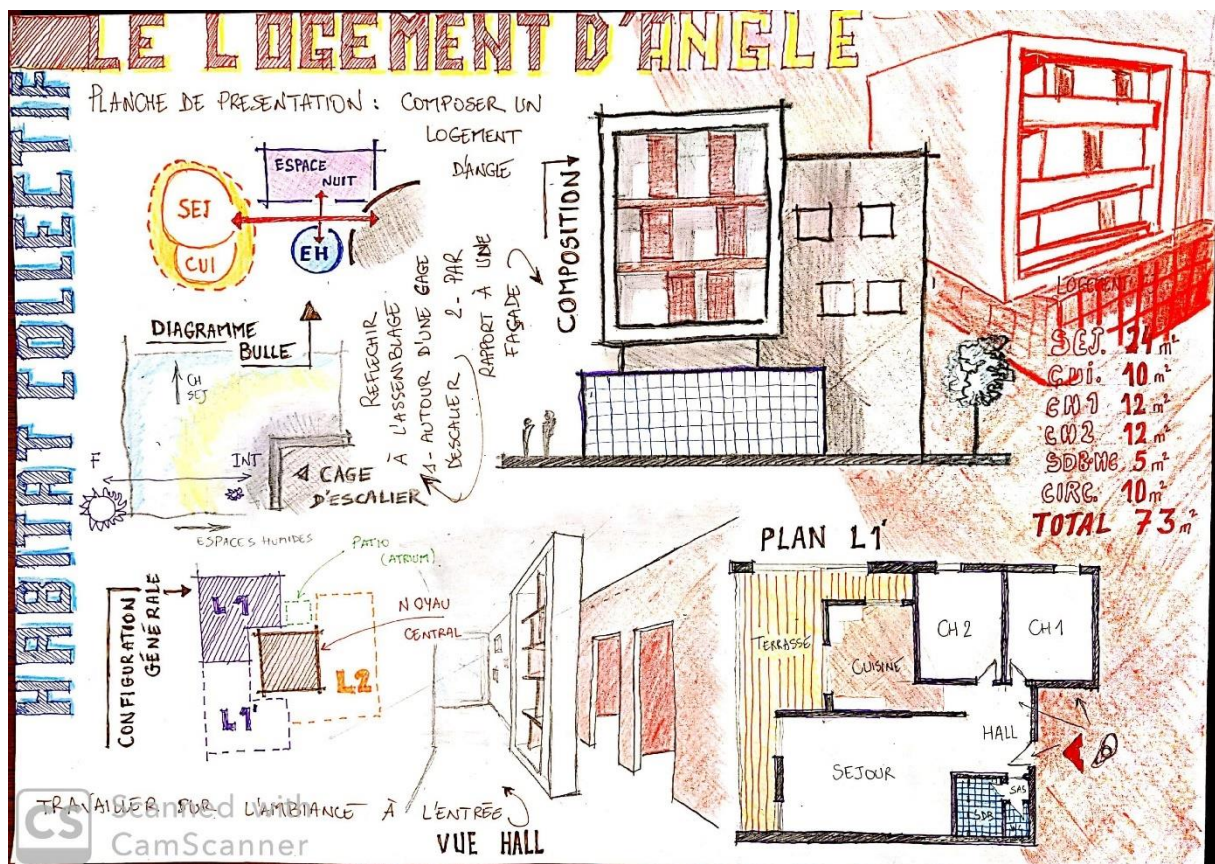 LE LOGEMENT D'ANGLE
HABITAT COLLECTIF
PLANCHE DE PRESENTATION : COMPOSER UN
LOGEMENT
D'ANGLE
ESPACE
NUIT
SEJ
CUI
EH
DIAGRAMME
BULLE
CH
SEJ
F
INT
CAGE
D'ESCALIER
ESPACES HUMIDES
REFLECHIR
À L'ASSENBLAGE
1- AUTOUR D'UNE CAGE
DESCALIER
2- PAR
RAPPORT À UNE
FAÇADE
COMPOSITION
LOGEMENT
SEJ. 24 m²
CUI. 10 m²
CH1 12 m²
CH2 12 m²
SDB+WC 5 m²
CIRC. 10 m²
TOTAL 73 m²
CONFIGURATION
GENERALE
PATIO
(ATRIUM)
L1
NOYAU
CENTRAL
L2
L1'
TRAVAILLER SUR L'AMBIANCE À L'ENTRÉE
VUE HALL
PLAN L1'
TERRASSE
CUISINE
CH2
CH1
HALL
SEJOUR
SAS
SDB
WC
CS
Scanned with
CamScanner